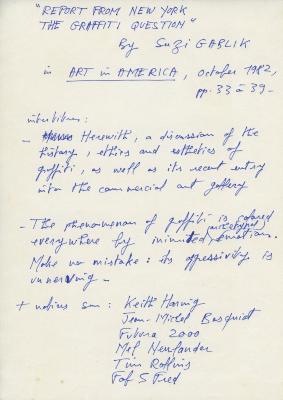 "REPORT FROM NEW YORK
THE GRAFFITI QUESTION"
By Suzi GABLIK
in ART in AMERICA, october 1982,
pp. 33 à 39-
intertitres :
- Herewith, a discussion of the
history, ethics and esthetics of
graffiti, as well as its recent entry
into the commercial art gallery
- The phenomenon of graffiti is colored
everywhere by emotion.
Make no mistake : its oppressivity is
unnerving -
+ notices sur : Keith Haring
Jean-Michel Basquiat
Futura 2000
Mel Neulander
Tim Rollins
Fab 5 Fred